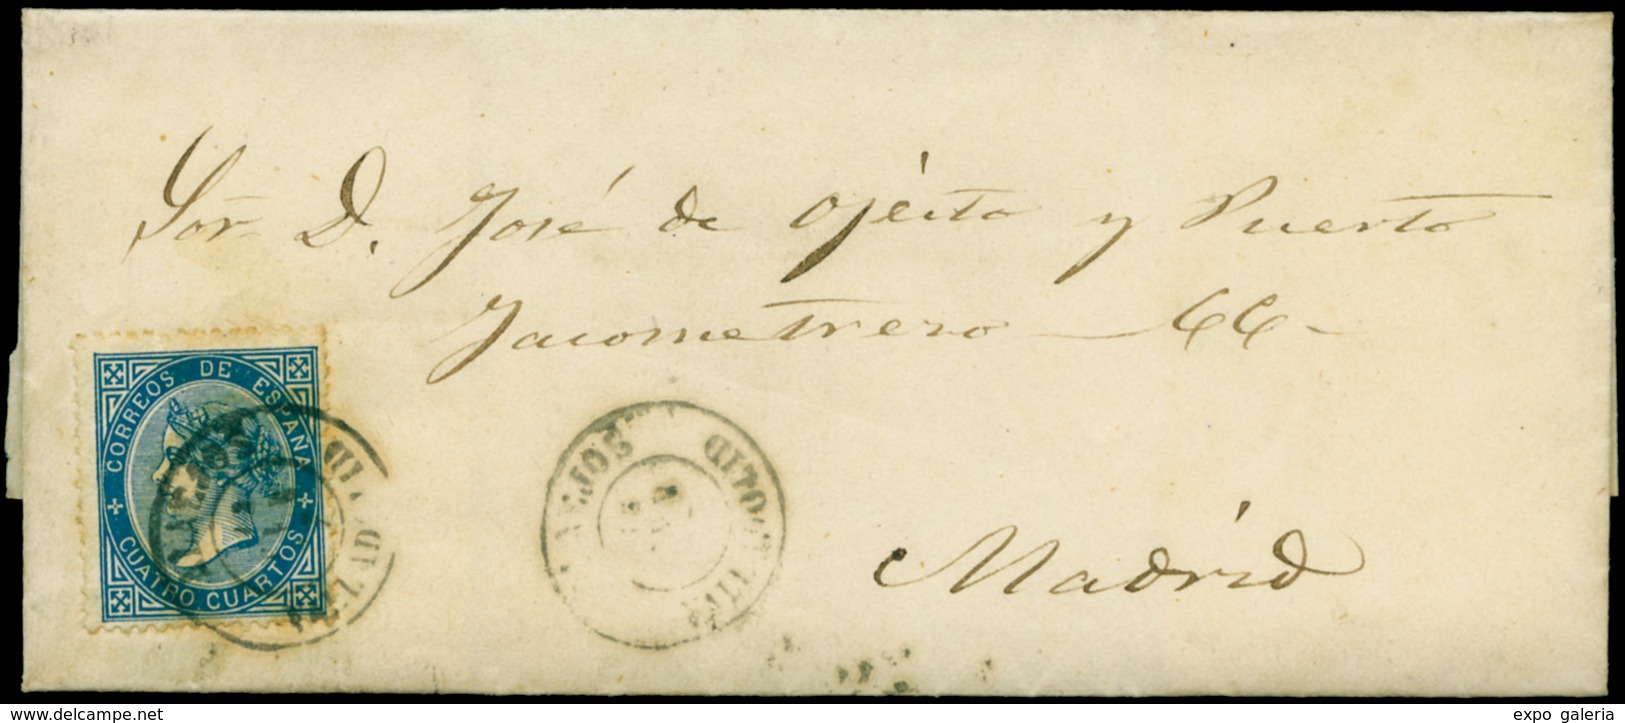 Sor D. José de Ojeita y Puerto
Jacometrezo 66
CORREOS DE ESPAÑA
CUATRO CUARTOS
Madrid
www.delcampe.net
expo galeria